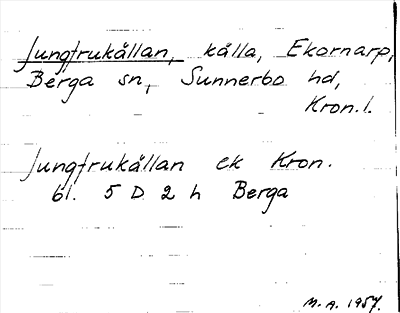 Jungfrukällan, källa, Ekornarp,
Berga sn, Sunnerbo hd,
Kron.l.
Jungfrukällan ek Kron.
bl. 5 D 2 h Berga
M.A. 1957.